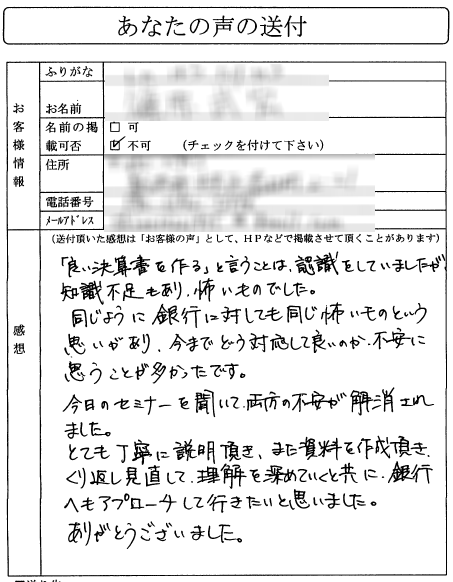 あなたの声の送付
お客様情報
ふりがな
お名前
名前の掲載可否
□ 可
☑ 不可 (チェックを付けて下さい)
住所
電話番号
メールアドレス
(送付頂いた感想は「お客様の声」として、HPなどで掲載させて頂くことがあります)
感想
「良い決算書を作る」と言うことは、認識をしていましたが
知識不足もあり、怖いものでした。
同じように銀行に対しても同じ怖いものという
思いがあり、今までどう対応して良いのか、不安に
思うことが多かったです。
今日のセミナーを聞いて、両方の不安が解消され
ました。
とても丁寧に説明頂き、また資料を作成頂き、
くり返し見直して、理解を深めていくと共に、銀行
へもアプローチして行きたいと思いました。
ありがとうございました。